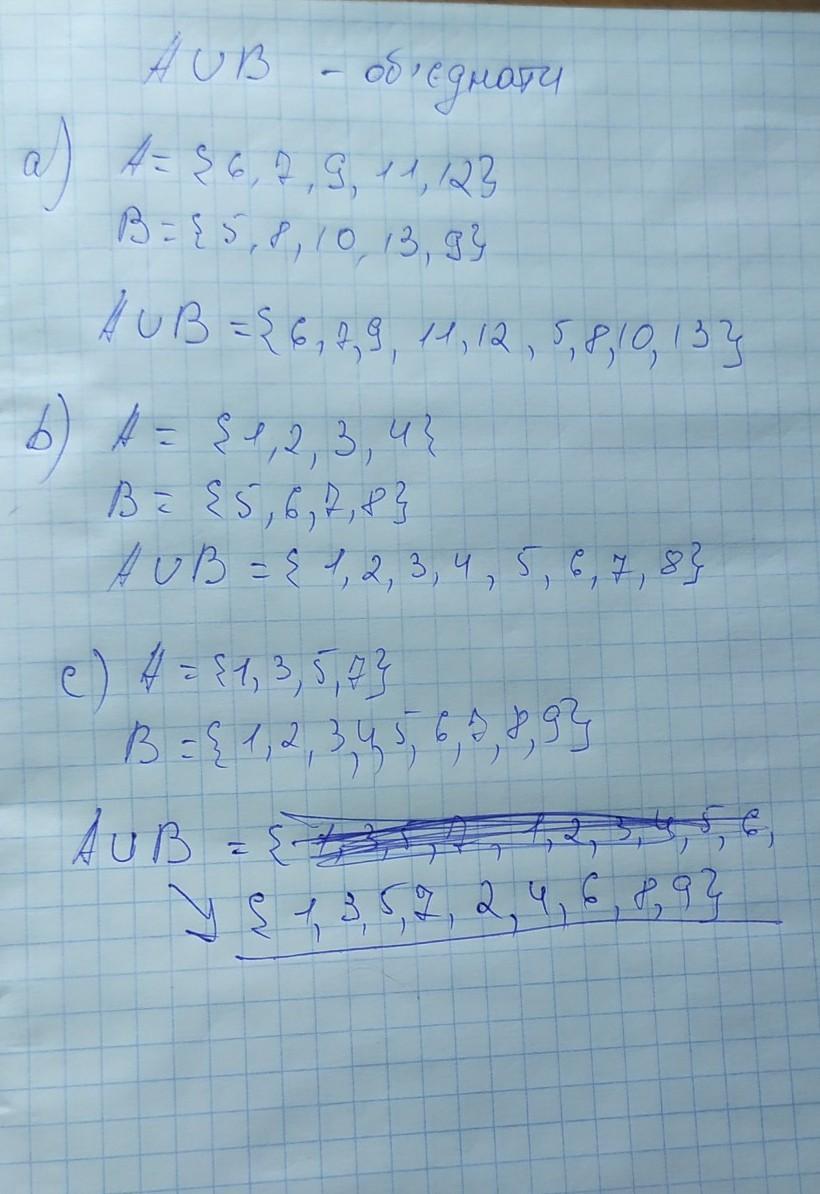 A ∪ B - об'єднати
a) A = {6, 7, 9, 11, 12}
B = {5, 8, 10, 13, 9}
A ∪ B = {6, 7, 9, 11, 12, 5, 8, 10, 13}
b) A = {1, 2, 3, 4}
B = {5, 6, 7, 8}
A ∪ B = {1, 2, 3, 4, 5, 6, 7, 8}
c) A = {1, 3, 5, 7}
B = {1, 2, 3, 4, 5, 6, 7, 8, 9}
A ∪ B = {1, 3, 5, 7, 1, 2, 3, 4, 5, 6,
↘ {1, 3, 5, 7, 2, 4, 6, 8, 9}